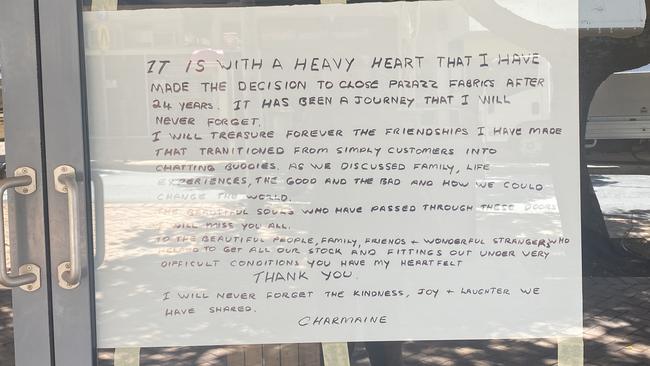 IT IS WITH A HEAVY HEART THAT I HAVE
MADE THE DECISION TO CLOSE PAZAZZ FABRICS AFTER
24 YEARS. IT HAS BEEN A JOURNEY THAT I WILL
NEVER FORGET.
I WILL TREASURE FOREVER THE FRIENDSHIPS I HAVE MADE
THAT TRANITIONED FROM SIMPLY CUSTOMERS INTO
CHATTING BUDDIES. AS WE DISCUSSED FAMILY, LIFE
EXPERIENCES, THE GOOD AND THE BAD AND HOW WE COULD
CHANGE THE WORLD.
THE BEAUTIFUL SOULS WHO HAVE PASSED THROUGH THESE DOORS
I WILL MISS YOU ALL.
TO THE BEAUTIFUL PEOPLE, FAMILY, FRIENDS + WONDERFUL STRANGERS WHO
HELPED TO GET ALL OUR STOCK AND FITTINGS OUT UNDER VERY
DIFFICULT CONDITIONS YOU HAVE MY HEARTFELT
THANK YOU.
I WILL NEVER FORGET THE KINDNESS, JOY + LAUGHTER WE
HAVE SHARED.
CHARMAINE